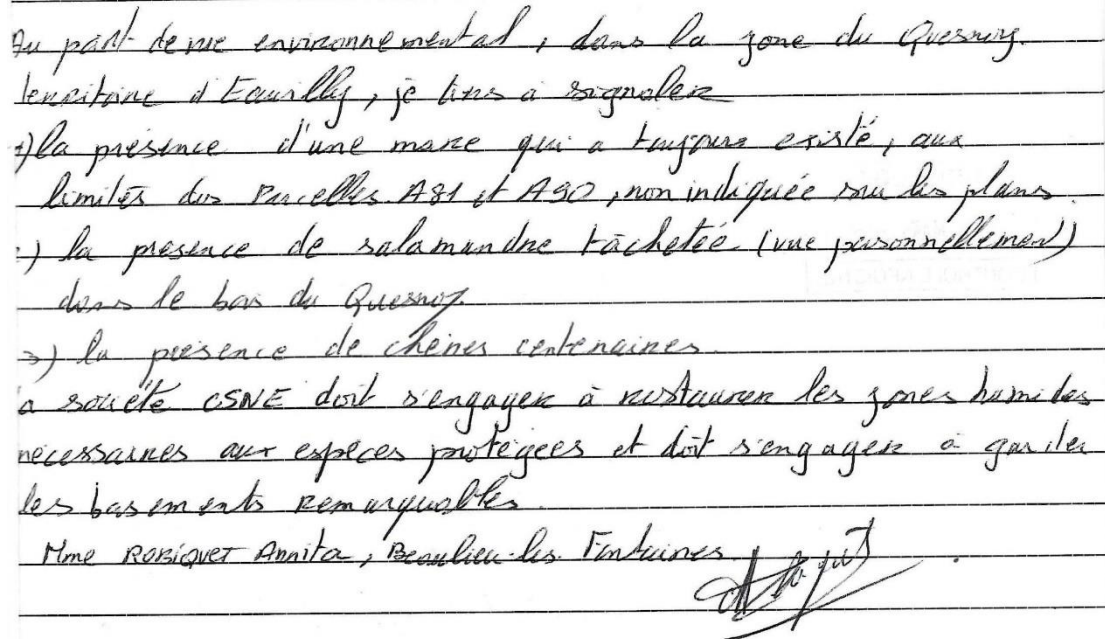 Au point de vue environnemental, dans la zone du Quesnoy.
territoire d'Ecuvilly, je tiens à signaler
1) la présence d'une mare qui a toujours existé, aux
limites des Parcelles A81 et A90, non indiquée sur les plans.
2) la présence de salamandre tâchetée (vue personnellement)
dans le bas du Quesnoy
3) la présence de chênes centenaires.
la société CSNE doit s'engager à restaurer les zones humides
nécessaires aux espèces protégées et doit s'engager à garder
les remarquables.
Mme ROBIQUET Annita, Beaulieu-les Fontaines.